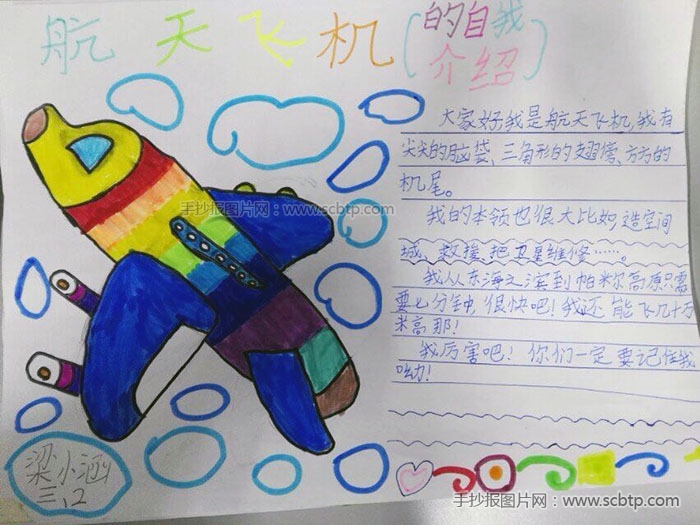 航天飞机(的自我
介绍)
大家好我是航天飞机,我有
尖尖的脑袋、三角形的翅膀、方方的
机尾。
我的本领也很大比如造空间
城、救援、把卫星维修……。
我从东海之滨到帕米尔高原只需
要七分钟,很快吧!我还能飞几十万
米高那!
我厉害吧!你们一定要记住我
呦!
手抄报图片网:www.scbtp.com
梁小涵
三、2
手抄报图片网:www.scbtp.com